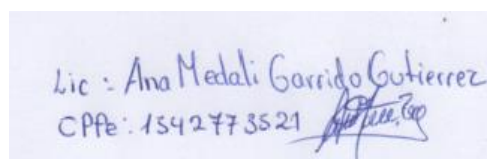 Lic : Ana Medali Garrido Gutierrez
CPPe: 1542773521